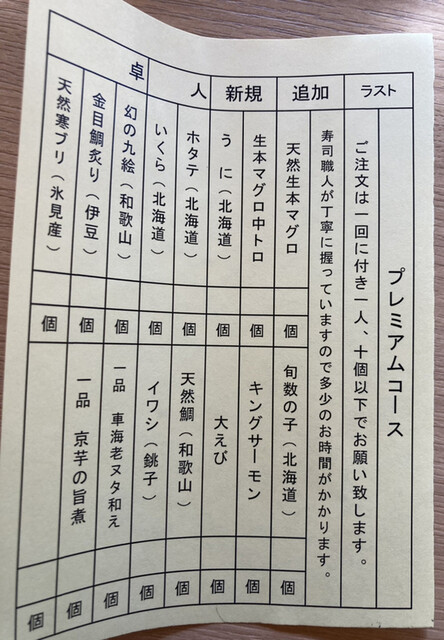 プレミアムコース
ご注文は一回に付き一人、十個以下でお願い致します。
寿司職人が丁寧に握っていますので多少のお時間がかかります。
ラスト
追加
新規
人
卓
天然生本マグロ
個
旬数の子(北海道)
個
生本マグロ中トロ
個
キングサーモン
個
うに(北海道)
個
大えび
個
ホタテ(北海道)
個
天然鯛(和歌山)
個
いくら(北海道)
個
イワシ(銚子)
個
幻の九絵(和歌山)
個
一品 車海老ヌタ和え
個
金目鯛炙り(伊豆)
個
一品 京芋の旨煮
個
天然寒ブリ(氷見産)
個
個